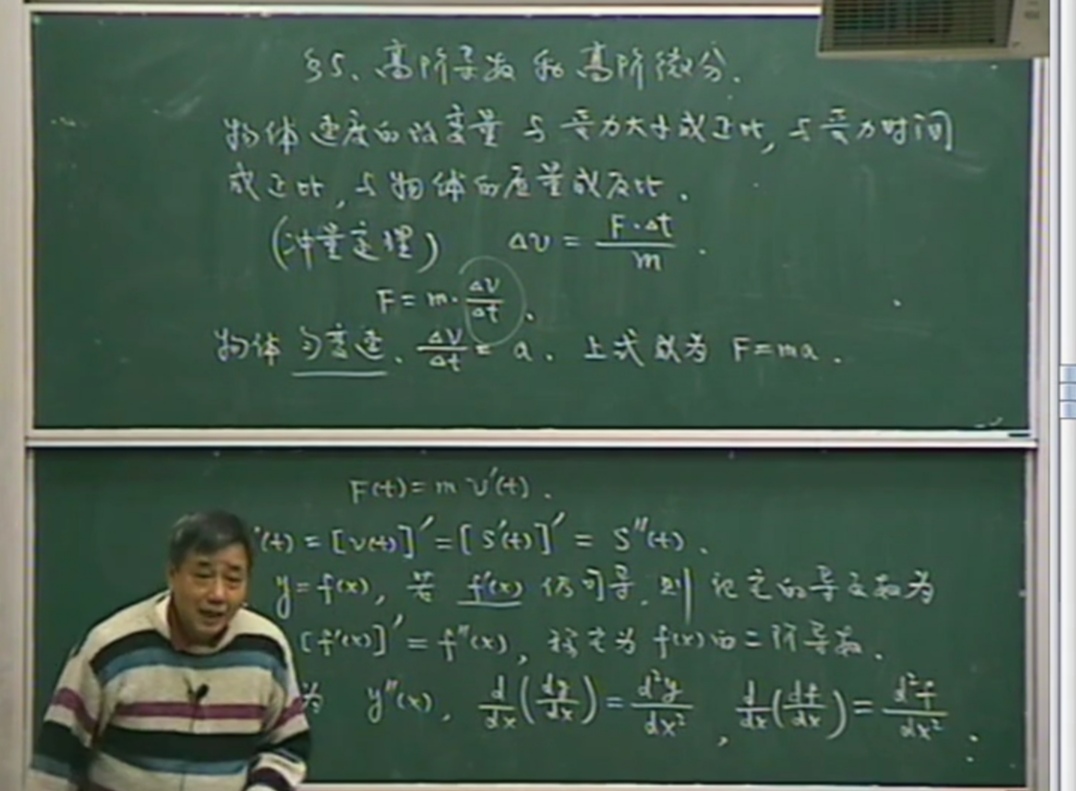 §5、高阶导数和高阶微分.
物体速度的改变量与受力大小成正比,与受力时间
成正比,与物体的质量成反比.
(冲量定理) Δv = F·Δt/m .
F = m·Δv/Δt .
物体匀变速、Δv/Δt = a. 上式成为 F=ma.
F(t) = m v'(t) .
'(t) = [v(t)]' = [S'(t)]' = S''(t) .
y=f(x), 若 f'(x) 仍可导,则记它的导函数为
[f'(x)]' = f''(x), 称它为 f(x) 的二阶导数.
为 y''(x), d/dx(dy/dx) = d²y/dx² , d/dx(df/dx) = d²f/dx² .